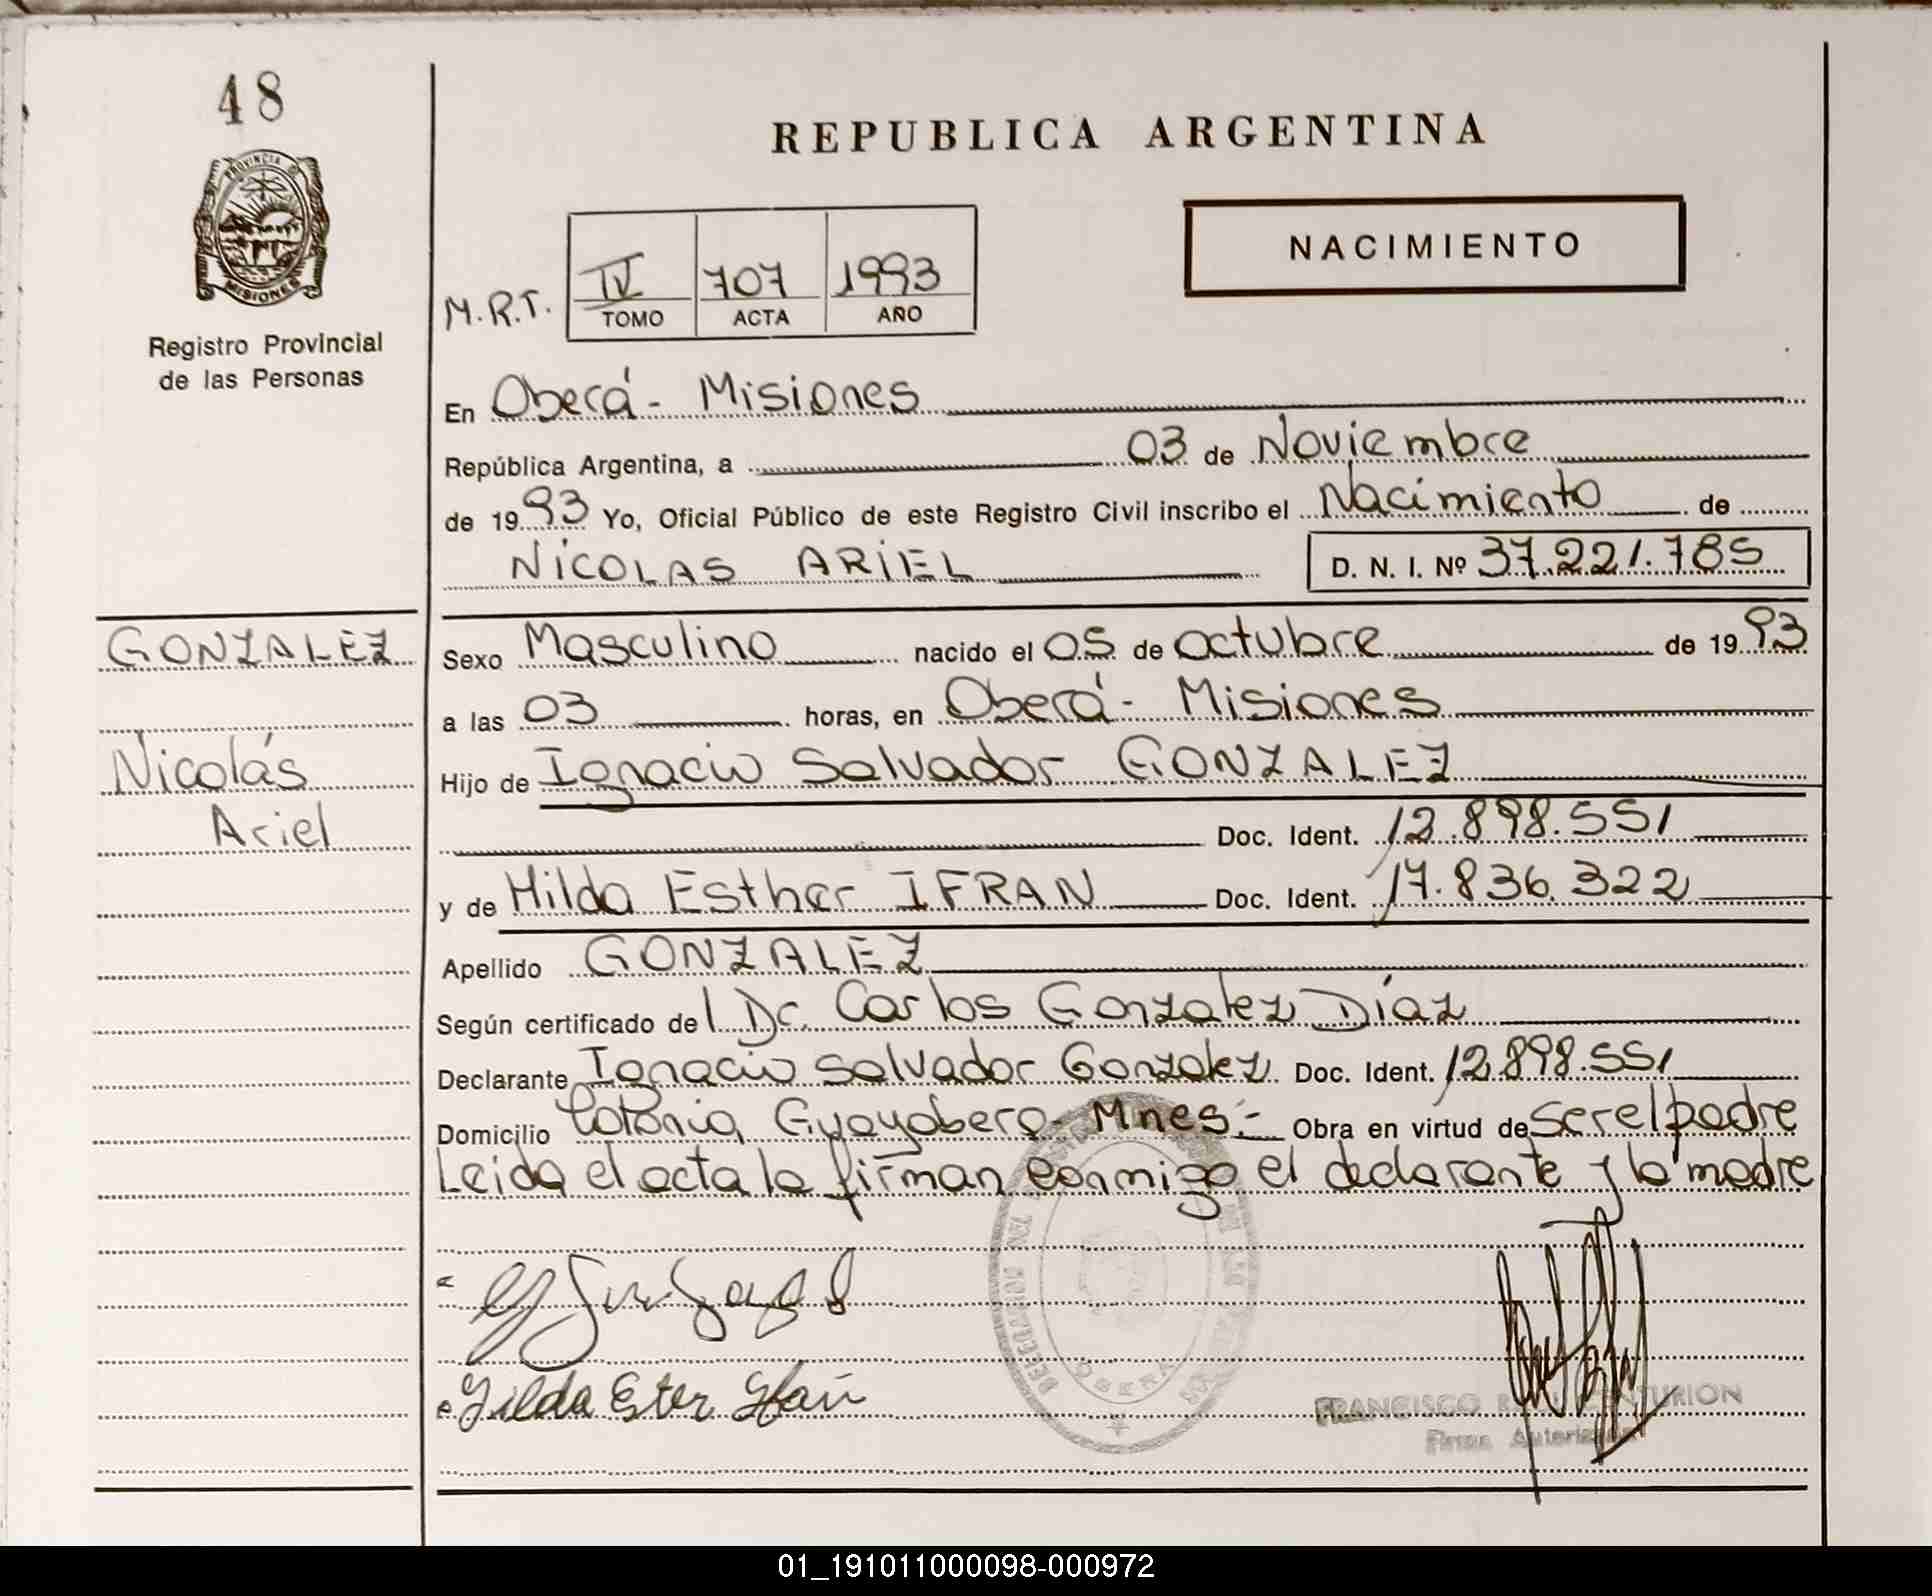 48
REPUBLICA ARGENTINA
PROVINCIA DE
MISIONES
NACIMIENTO
M.R.T.
IV 707 1993
TOMO ACTA AÑO
Registro Provincial
de las Personas
En Oberá - Misiones
República Argentina, a 03 de Noviembre
de 1993 Yo, Oficial Público de este Registro Civil inscribo el Nacimiento de
NICOLAS ARIEL D. N. I. Nº 37.221.785
GONZALEZ
Sexo Masculino nacido el 05 de Octubre de 1993
a las 03 horas, en Oberá - Misiones
Nicolás
Hijo de Ignacio Salvador GONZALEZ
Ariel
Doc. Ident. 12.898.551
y de Hilda Esther IFRAN Doc. Ident. 17.836.322
Apellido GONZALEZ
Según certificado del Dr. Carlos Gonzalez Díaz
Declarante Ignacio Salvador Gonzalez Doc. Ident. 12.898.551
Domicilio Colonia Guayabera - Mnes.- Obra en virtud de ser el padre
Leida el acta la firman conmigo el declarante y la madre
Hilda Ester Ifran
OBERA
FRANCISCO CENTURION
Firma Autorizada
01_191011000098-000972